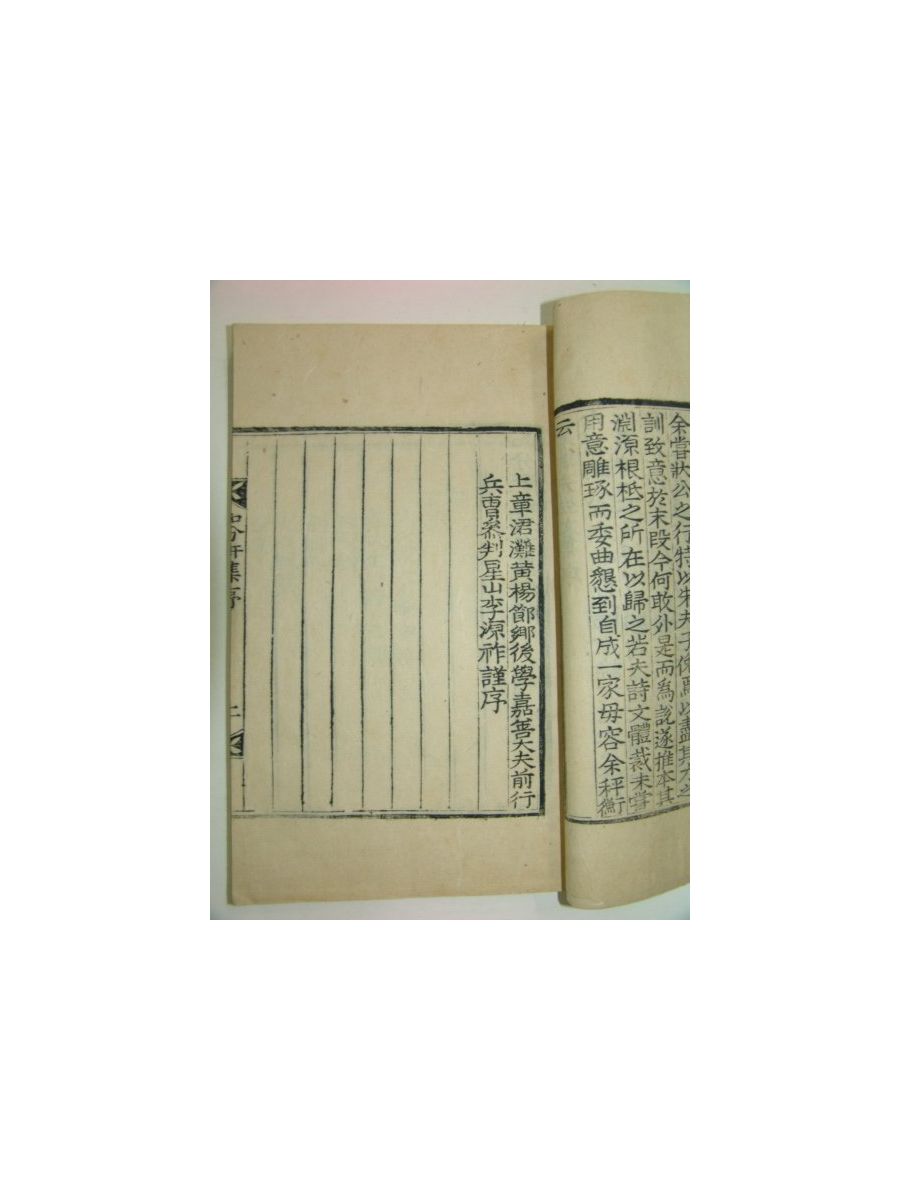 余嘗狀公之行特以朱夫子
訓致意於末段今何敢外是而爲說遂推本其
淵源根柢之所在以歸之若夫詩文體裁未嘗
用意雕琢而委曲懇到自成一家毋容余秤衡
云
上章涒灘黃楊節鄕後學嘉善大夫前行
兵曹叅判星山李源祚謹序
軒集序
二